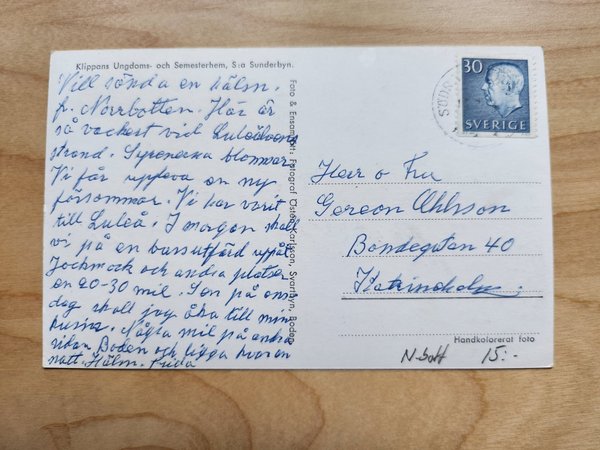 Klippans Ungdoms- och Semesterhem, S:a Sunderbyn.
Vill sända en hälsn.
fr. Norrbotten. Här är
så vackert vid Luleälvens
strand. Syrenerna blommar
Vi får uppleva en ny
försommar. Vi har varit
till Luleå. I morgon skall
vi på en bussutfärd uppåt
Jockmock och andra platser
en 20-30 mil. Sen på ons
dag skall jag åka till min
kusin. Några mil på andra
sidan Boden och ligga över en
natt. Hälsn. Frida
Foto & Ensamrätt: Fotograf Osten Karlsson, Svartbyn, Boden
30
SVERIGE
SÖDR
Herr o Fru
Gereon Ohlsson
Bondegatan 40
Katrineholm
Handkolorerat foto
N-bott 15:-